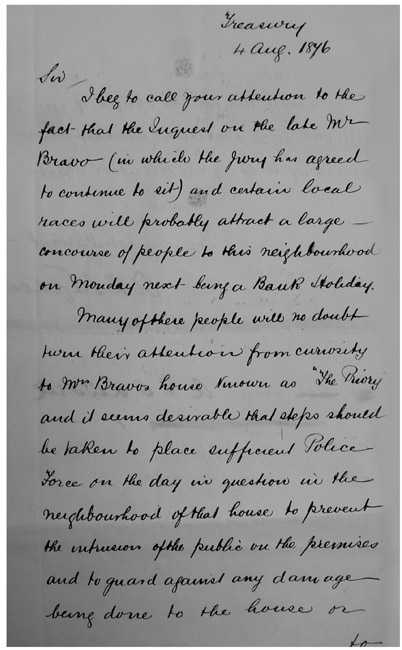 Treasury
4 Aug. 1876
Sir
I beg to call your attention to the
fact that the Inquest on the late Mr
Bravo (in which the Jury has agreed
to continue to sit) and certain local
races will probably attract a large
concourse of people to this neighbourhood
on Monday next being a Bank Holiday.
Many of these people will no doubt
turn their attention from curiosity
to Mrs Bravos house known as "The Priory
and it seems desirable that steps should
be taken to place sufficient Police
Force on the day in question in the
neighbourhood of that house to prevent
the intrusion of the public on the premises
and to guard against any damage
being done to the house or
to